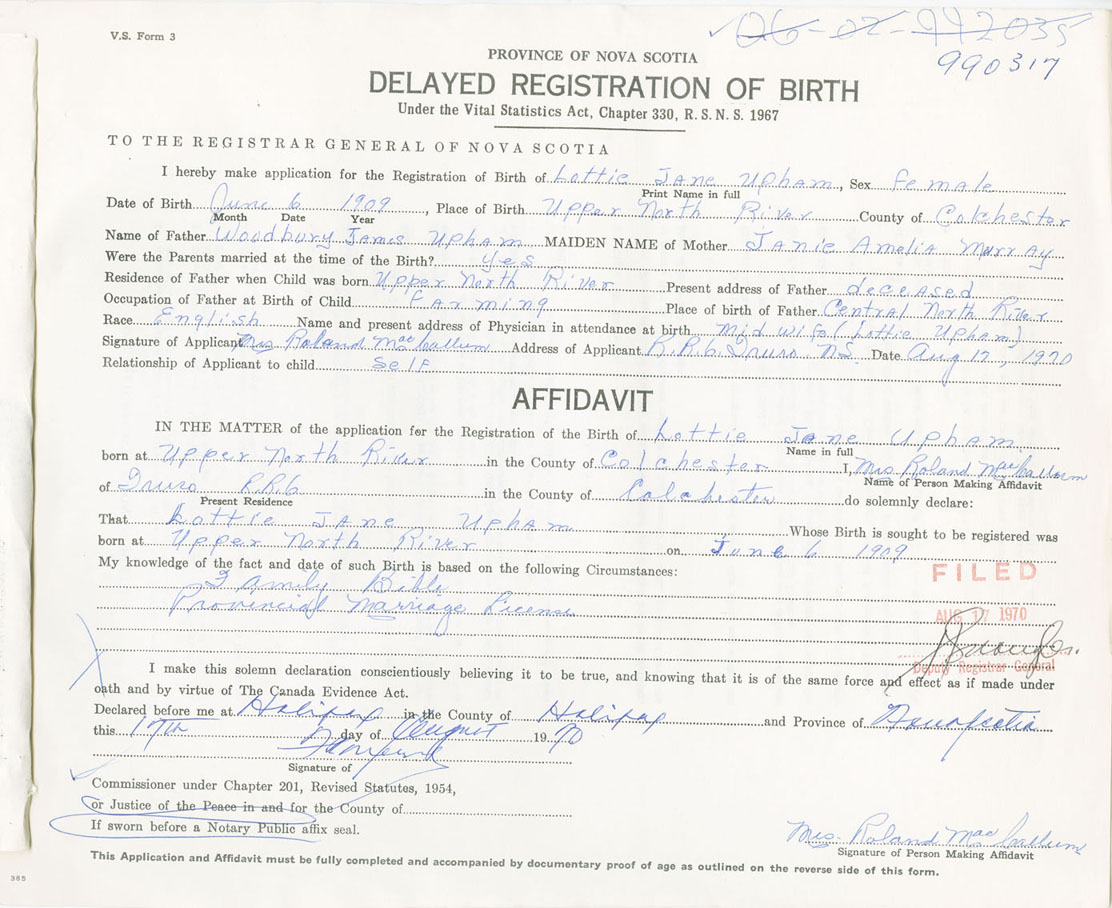 V.S. Form 3
06-02-992035
990317
PROVINCE OF NOVA SCOTIA
DELAYED REGISTRATION OF BIRTH
Under the Vital Statistics Act, Chapter 330, R. S. N. S. 1967
TO THE REGISTRAR GENERAL OF NOVA SCOTIA
I hereby make application for the Registration of Birth of Lottie Jane Upham, Sex female
Print Name in full
Date of Birth June 6 1909, Place of Birth Upper North River County of Colchester
Month Date Year
Name of Father Woodbury James Upham MAIDEN NAME of Mother Janie Amelia Murray
Were the Parents married at the time of the Birth? yes
Residence of Father when Child was born Upper North River Present address of Father deceased
Occupation of Father at Birth of Child Farming Place of birth of Father Central North River
Race English Name and present address of Physician in attendance at birth mid wife (Lottie Upham)
Signature of Applicant Mrs Roland MacCallum Address of Applicant R.R.6. Truro. N.S. Date Aug 17, 1970
Relationship of Applicant to child self
AFFIDAVIT
IN THE MATTER of the application for the Registration of the Birth of Lottie Jane Upham
Name in full
born at Upper North River in the County of Colchester I, Mrs. Roland MacCallum
Name of Person Making Affidavit
of Truro R.R.6 in the County of Colchester do solemnly declare:
Present Residence
That Lottie Jane Upham Whose Birth is sought to be registered was
born at Upper North River on June 6 1909
My knowledge of the fact and date of such Birth is based on the following Circumstances:
Family Bible
Provincial Marriage License
FILED
AUG 17 1970
Deputy Registrar General
I make this solemn declaration conscientiously believing it to be true, and knowing that it is of the same force and effect as if made under
oath and by virtue of The Canada Evidence Act.
Declared before me at Halifax in the County of Halifax and Province of Nova Scotia
this 17th day of August 1970
Signature of
Commissioner under Chapter 201, Revised Statutes, 1954,
or Justice of the Peace in and for the County of
If sworn before a Notary Public affix seal.
Mrs. Roland MacCallum
Signature of Person Making Affidavit
This Application and Affidavit must be fully completed and accompanied by documentary proof of age as outlined on the reverse side of this form.
385